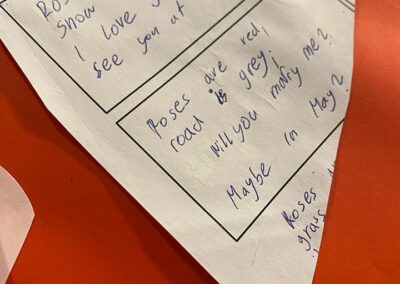 Ros
snow
I love
see you at
Roses are red,
road is grey!
Will you marry me?
Maybe in May?
Roses
grass